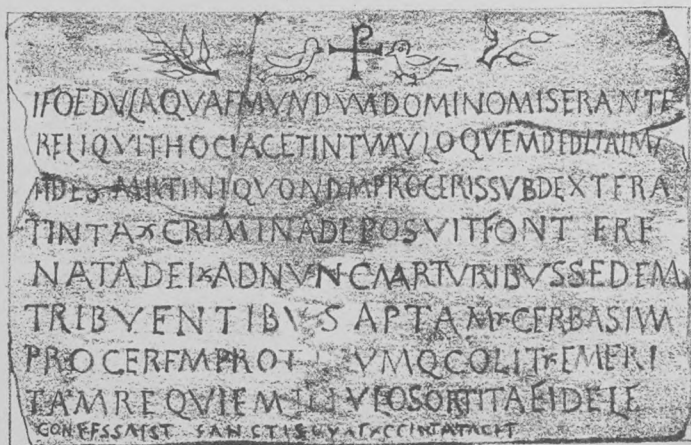 IFOEDVLAQVAEMVNDVMDOMINOMISERANTE
RELIQVITHOCIACETINTVMVLOQVEMDEDITALMA
FIDES MARTINIQVONDMPROCERISSVBDEXTERA
TINTA CRIMINADEPOSVITFONT ERE
NATADEI ADNVNCMARTVRIBVSSEDEM
TRIBVENTIBVS APTAM CERBASIVM
PROCEREMPROT VMQCOLIT EMERI
TAMREQVIEM SORTITAEIDELE
CONFFSSAIST SANCTIS